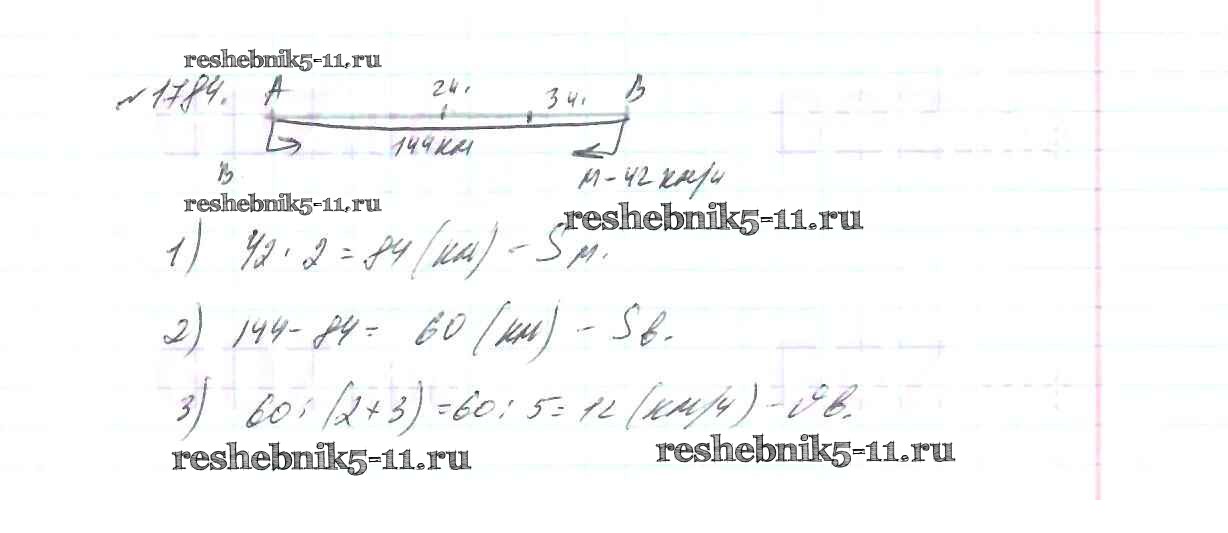 reshebnik5-11.ru
№1784. A 2ч. 3ч. B
144км
В М - 42 км/ч
reshebnik5-11.ru
reshebnik5-11.ru
1) 42 · 2 = 84 (км) - Sм.
2) 144 - 84 = 60 (км) - Sв.
3) 60 : (2+3) = 60 : 5 = 12 (км/ч) - υв.
reshebnik5-11.ru
reshebnik5-11.ru